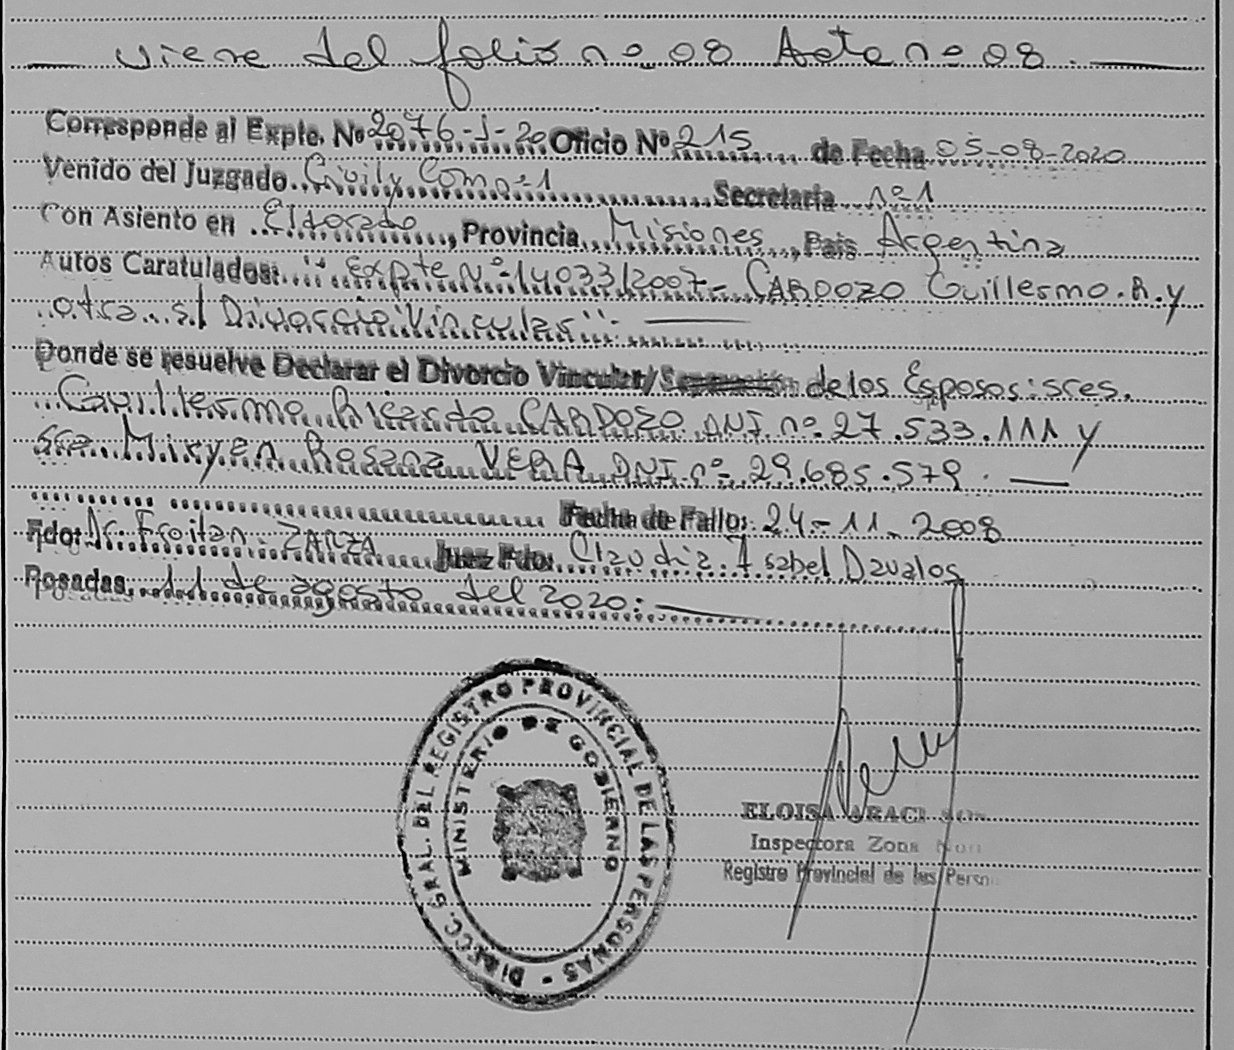 viene del folio nº 08 Acta nº 08.
Corresponde al Expte. Nº 2076-J-20 Oficio Nº 215 de Fecha 05-08-2020
Venido del Juzgado Civil y Com nº 1 Secretaria nº 1
Con Asiento en Eldorado, Provincia Misiones, Pais Argentina
Autos Caratulados: "Expte Nº 14033/2007 - CARDOZO Guillermo. R. y
otra s/ Divorcio Vincular".
Donde se resuelve Declarar el Divorcio Vincular/Separación de los Esposos: sres.
Guillermo Ricardo CARDOZO DNI nº 27.533.111 y
sra Miryen Rosana VERA DNI nº 29.685.579.
Fecha de Fallo: 24-11-2008
Fdo: Dr. Froilan ZARZA Juez Fdo: Claudia Isabel Davalos
Posadas, 11 de agosto del 2020:
DIRECC. GRAL. DEL REGISTRO PROVINCIAL DE LAS PERSONAS -
MINISTERIO DE GOBIERNO
ELOISA ARACI
Inspectora Zona
Registro Provincial de las